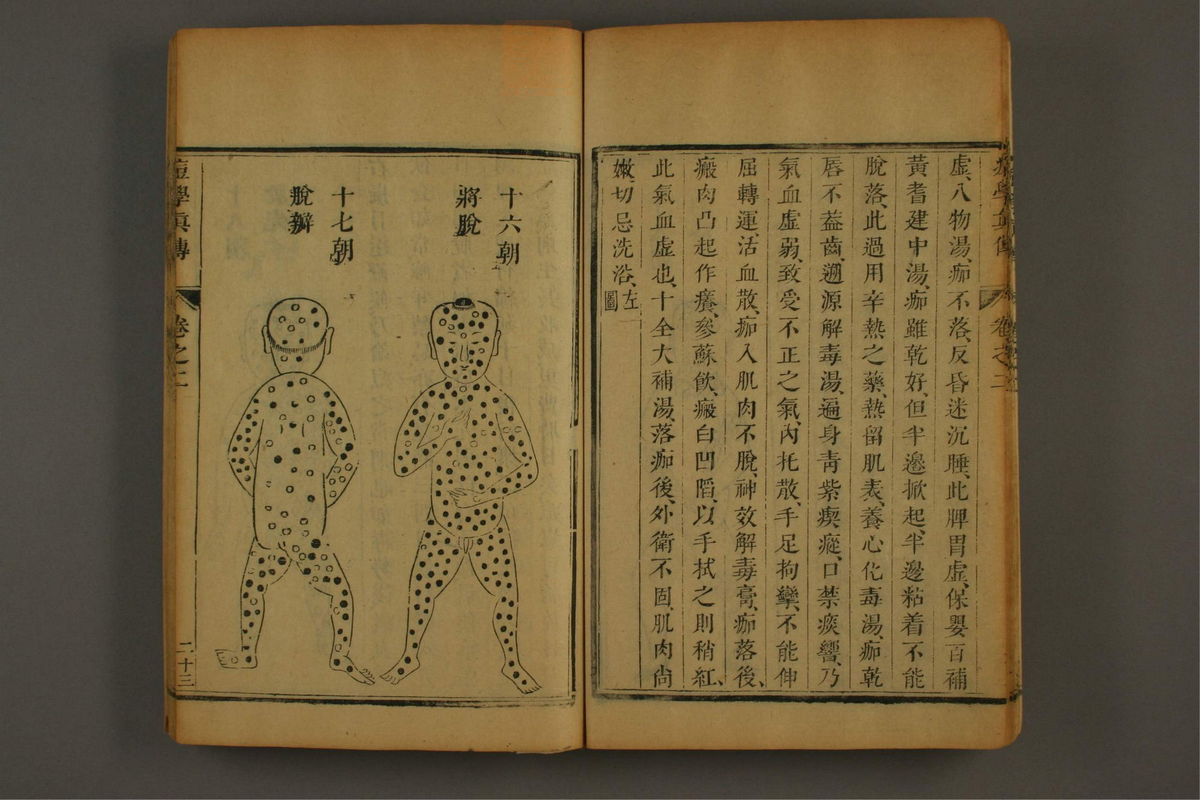 虛、八物湯、痂不落、反昏迷沉睡、此脾胃虛、保嬰百補
黃耆建中湯、痂雖乾好、但半邊掀起、半邊粘着不能
脫落、此過用辛熱之藥、熱留肌表、養心化毒湯、痂乾
唇不蓋齒、遡源解毒湯、遍身青紫瘈瘲、口禁痰響、乃
氣血虛弱、致受不正之氣、內托散、手足拘攣、不能伸
屈轉運、活血散、痂入肌肉不脫、神效解毒膏、痂落後、
瘢肉凸起作癢、參蘇飲、瘢白凹陷、以手拭之則稍紅、
此氣血虛也、十全大補湯、落痂後、外衛不固、肌肉尚
嫩、切忌洗浴、左圖
痘學真傳 卷之二
十六朝
將脫
十七朝
脫辦
痘學眞傳 卷之二 二十三